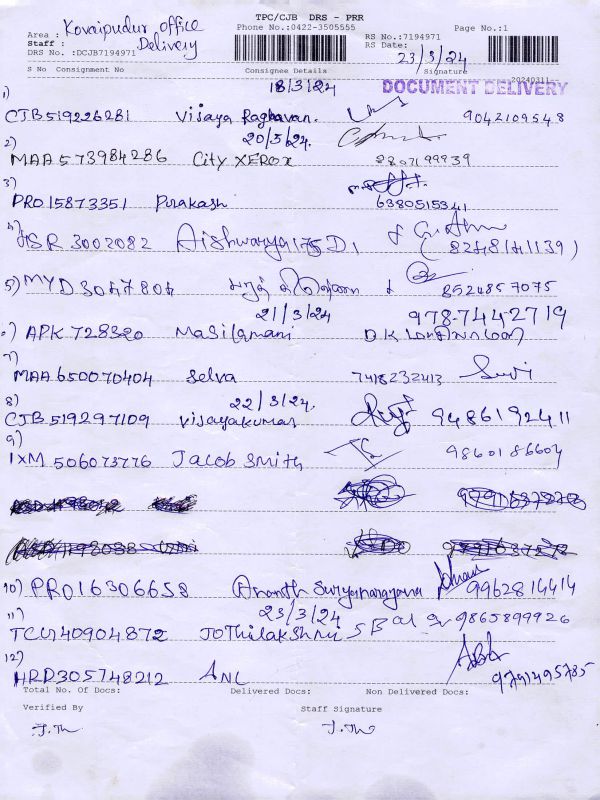 TPC/CJB DRS - PRR
Area : Kovaipudur office Phone No.:0422-3505555 RS No.:7194971 Page No.:1
Staff : Delivery RS Date: 23/3/24
DRS No. :DCJB7194971
S No Consignment No Consignee Details Signature 20240311
18/3/24 DOCUMENT DELIVERY
1)
CJB519226281 Vijaya Raghavan. 9042109548
20/3/24.
2)
MAA573984286 City XEROX 2807199939
3)
PRO15873351 Purakash 6380515341
3002082 Aishwarya 175 D1 (8248141139)
5) MYD3047804 8524857075
21/3/24 978-744-2719
APK 728320 Masilamani D.K
7)
MAA650070404 Selva 7418232413 Selvi
8) 22/3/24.
CJB519297109 Vijayakumar 9486192411
9)
IXM 506073776 Jacob Smith 9860186604
10) PRO16306658 Ananth Suryanarayana 9962814414
11) 23/3/24
40904872 Jothilakshmi 9865899926
12)
HRD305748212 ANL 9791495785
Total No. Of Docs: Delivered Docs: Non Delivered Docs:
Verified By Staff Signature
J.Th J.Th